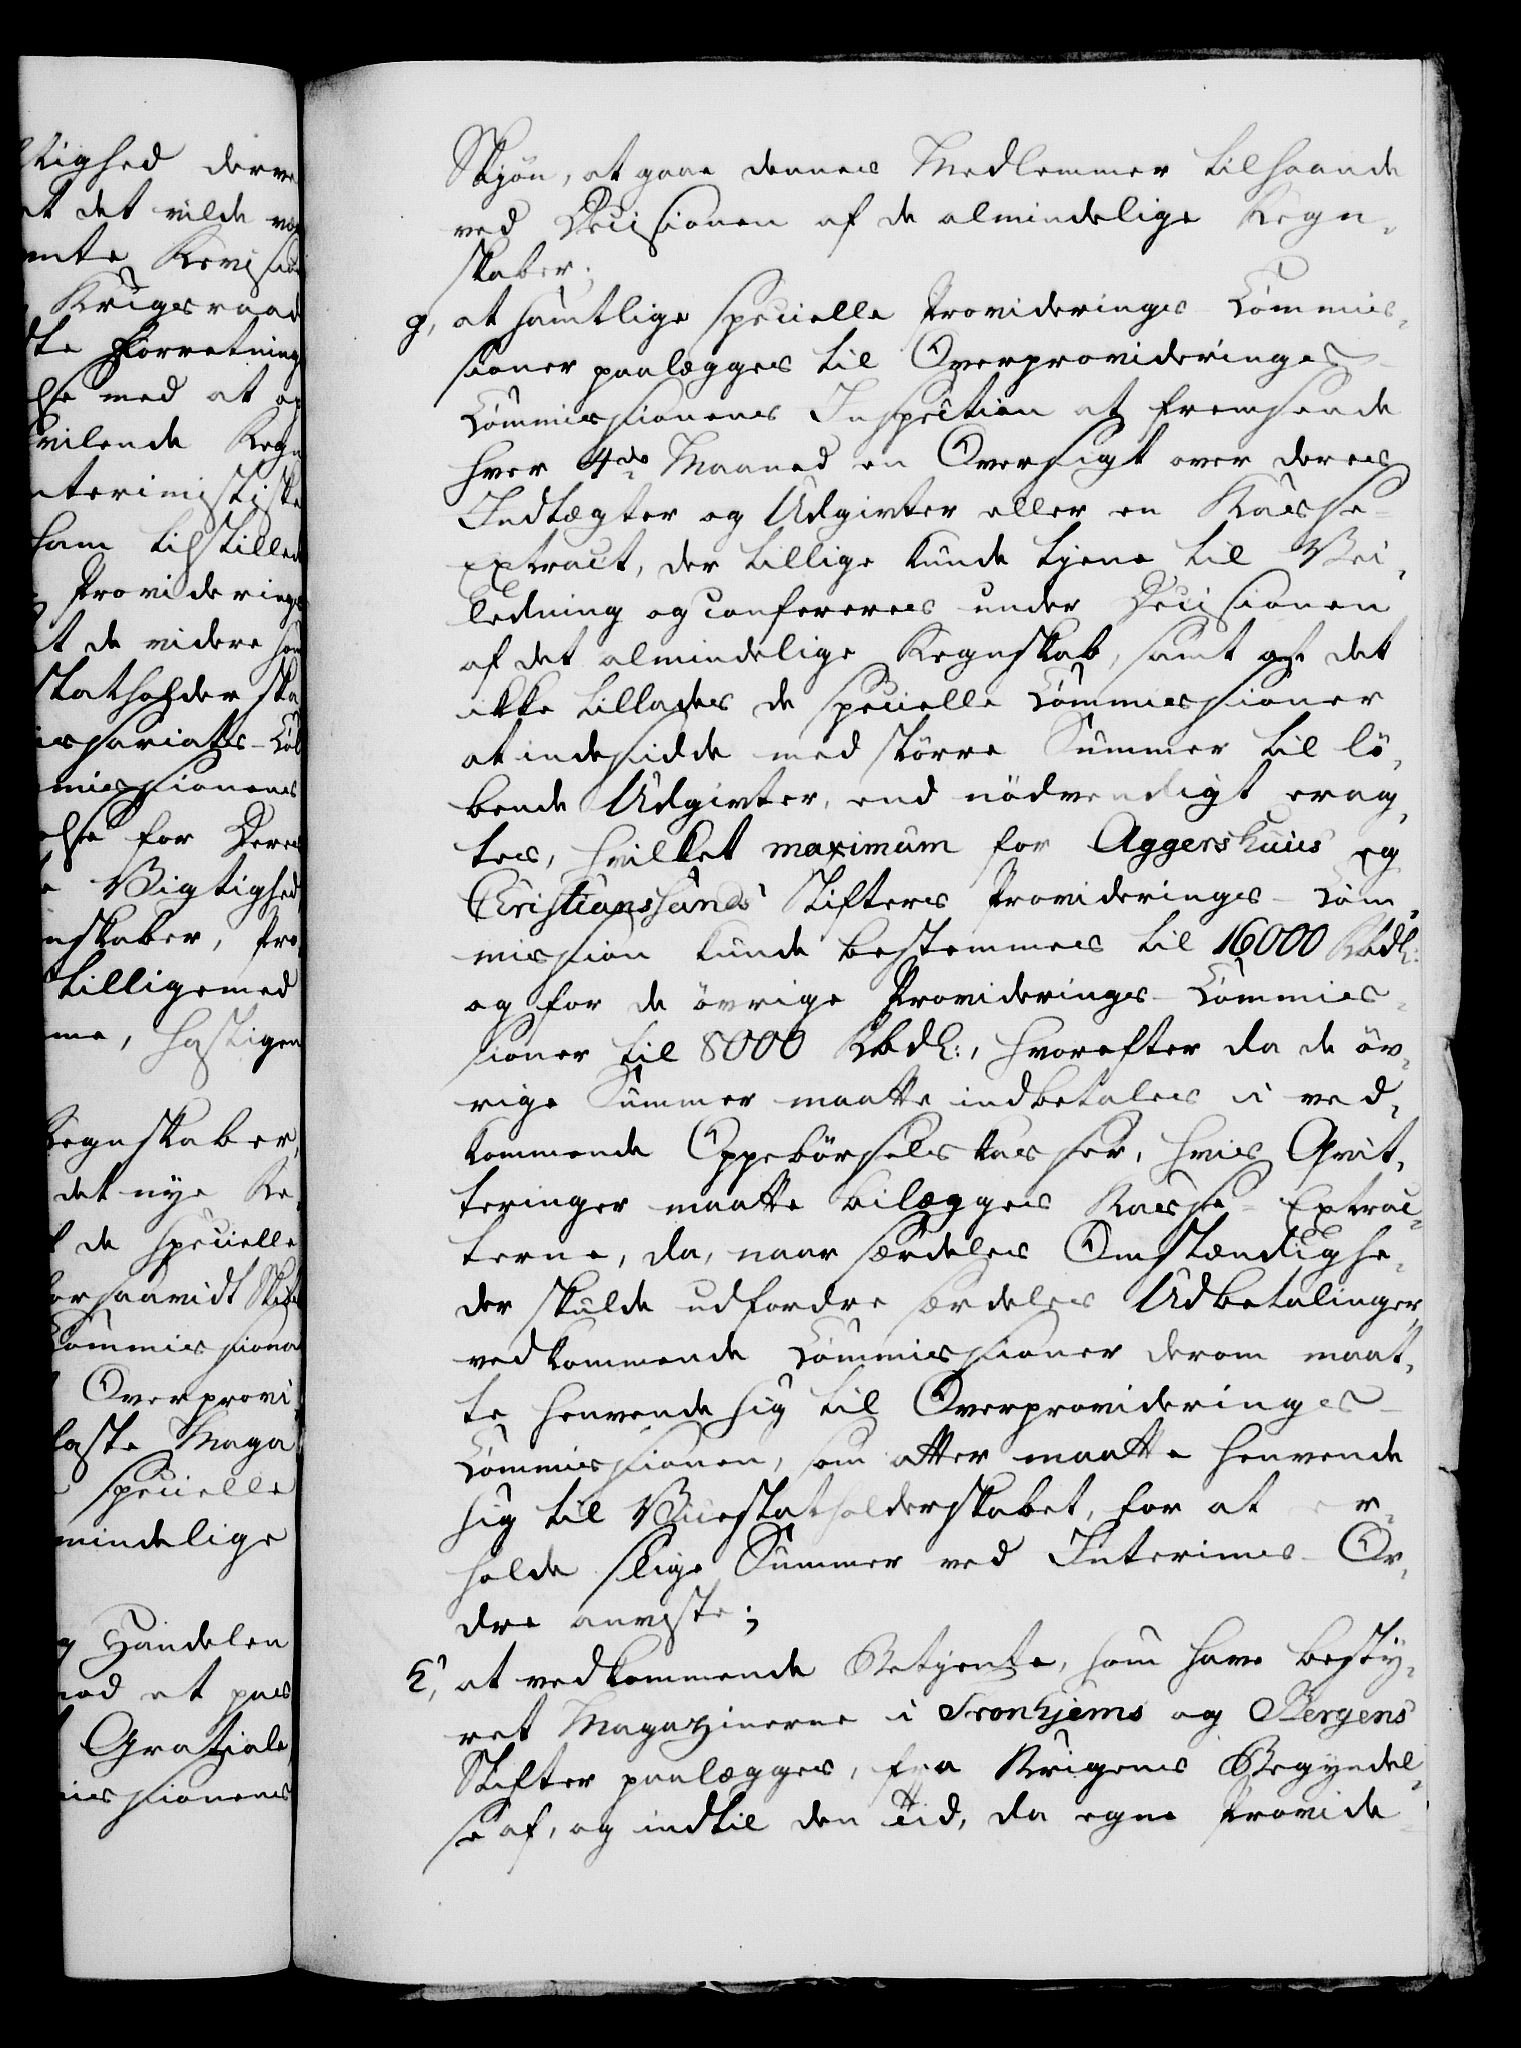 ltighed derve
at det vilde væ
mte Revision
Krigsraad
ste Forretning
else med at op
hvilende Regn
nterimistiske
ham tilstilled
Providerings
t de videre
Statholderska
issariats-Col
missionens
else for Deres
Vigtighed
nskaber, Pro¬
tilligemed
me, hastigen
Regnskaber,
det nye Re¬
de specielle
forsaavidt
Commissionen
Overprovi¬
laste Maga
specielle
mindelige
Handelen
Gratiale
missionens
Skjøn, at gaae dennes Medlemmer tilhaande
ved Decisionen af de almindelige Regn¬
skaber;
g, at samtlige specielle Providerings-Commis¬
sioner paalægges til Overproviderings-
Commissionens Inspection at fremsende
hver 4de Maaned en Oversigt over deres
Indtægter og Udgivter eller en Kasse-
extract, der tillige kunde tjene til Vei¬
ledning og confereres under Decisionen
af det almindelige Regnskab, samt at det
ikke tillades de specielle Commissioner
at indesidde med større Summer til lø¬
bende Udgivter, end nödvendigt erag¬
tes, hvilket maximum for Aggershuus og
Christianssands Stifters Providerings-Com¬
mission kunde bestemmes til 16000 Rbdl:
og for de övrige Providerings-Commis¬
sioner til 8000 Rbdl:, hvorefter da de öv¬
rige Summer maatte indbetales i ved¬
kommende Oppebörselskasser, hvis Qvit¬
teringer maatte bilægges Kasse-Extrac¬
terne, da, naar særdeles Omstændighe¬
der skulde udfordre særdeles Udbetalinger,
vedkommende Commissioner derom maat¬
te henvende sig til Overproviderings-
Commissionen, som atter maatte henvende
sig til Vicestatholderskabet, for at er¬
holde slige Summer ved Interims-Or¬
dre anviste;
h, at vedkommende Betjente, som have besty¬
ret Magazinerne i Tronhjems og Bergens
Stifter paalægges, fra Krigens Begyndel¬
se af, og indtil den Tid, da egne Provide¬